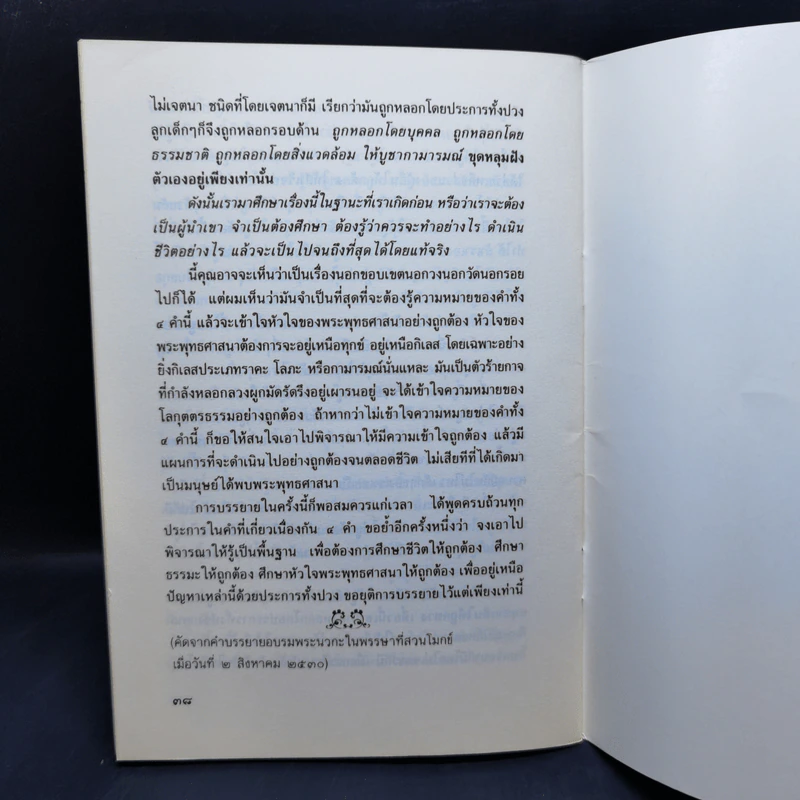 ไม่เจตนา ชนิดที่โดยเจตนาก็มี เรียกว่ามันถูกหลอกโดยประการทั้งปวง
ลูกเด็กๆก็จึงถูกหลอกรอบด้าน ถูกหลอกโดยบุคคล ถูกหลอกโดย
ธรรมชาติ ถูกหลอกโดยสิ่งแวดล้อม ให้บูชากามารมณ์ ขุดหลุมฝัง
ตัวเองอยู่เพียงเท่านั้น
ดังนั้นเรามาศึกษาเรื่องนี้ในฐานะที่เราเกิดก่อน หรือว่าเราจะต้อง
เป็นผู้นำเขา จำเป็นต้องศึกษา ต้องรู้ว่าควรจะทำอย่างไร ดำเนิน
ชีวิตอย่างไร แล้วจะเป็นไปจนถึงที่สุดได้โดยแท้จริง
นี้คุณอาจจะเห็นว่าเป็นเรื่องนอกขอบเขตนอกวงนอกวัดนอกรอย
ไปก็ได้ แต่ผมเห็นว่ามันจำเป็นที่สุดที่จะต้องรู้ความหมายของคำทั้ง
๔ คำนี้ แล้วจะเข้าใจหัวใจของพระพุทธศาสนาอย่างถูกต้อง หัวใจของ
พระพุทธศาสนาต้องการจะอยู่เหนือทุกข์ อยู่เหนือกิเลส โดยเฉพาะอย่าง
ยิ่งกิเลสประเภทราคะ โลภะ หรือกามารมณ์นั่นแหละ มันเป็นตัวร้ายกาจ
ที่กำลังหลอกลวงผูกมัดรัดรึงอยู่เผารนอยู่ จะได้เข้าใจความหมายของ
โลกุตตรธรรมอย่างถูกต้อง ถ้าหากว่าไม่เข้าใจความหมายของคำทั้ง
๔ คำนี้ ก็ขอให้สนใจเอาไปพิจารณาให้มีความเข้าใจถูกต้อง แล้วมี
แผนการที่จะดำเนินไปอย่างถูกต้องจนตลอดชีวิต ไม่เสียทีที่ได้เกิดมา
เป็นมนุษย์ได้พบพระพุทธศาสนา
การบรรยายในครั้งนี้ก็พอสมควรแก่เวลา ได้พูดครบถ้วนทุก
ประการในคำที่เกี่ยวเนื่องกัน ๔ คำ ขอย้ำอีกครั้งหนึ่งว่า จงเอาไป
พิจารณาให้รู้เป็นพื้นฐาน เพื่อต้องการศึกษาชีวิตให้ถูกต้อง ศึกษา
ธรรมะให้ถูกต้อง ศึกษาหัวใจพระพุทธศาสนาให้ถูกต้อง เพื่ออยู่เหนือ
ปัญหาเหล่านี้ด้วยประการทั้งปวง ขอยุติการบรรยายไว้แต่เพียงเท่านี้
(คัดจากคำบรรยายอบรมพระนวกะในพรรษาที่สวนโมกข์
เมื่อวันที่ ๒ สิงหาคม ๒๕๓๐)
๓๘